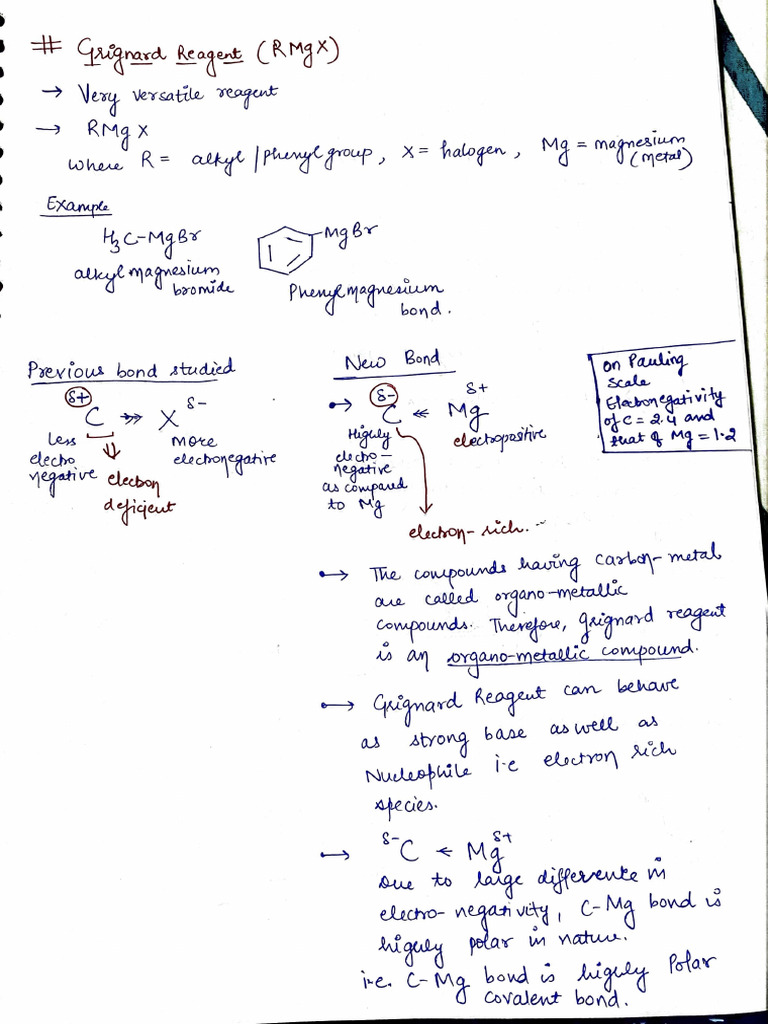 # Grignard Reagent (RMgX)
→ Very versatile reagent
→ RMgX
where R = alkyl/phenyl group, X = halogen, Mg = magnesium
(metal)
Example
H3C-MgBr
alkyl magnesium
bromide
-MgBr
Phenylmagnesium
bond.
Previous bond studied
δ+ δ-
C ->> X
Less
electro
negative
more
electronegative
electron
deficient
New Bond
δ- δ+
C <<- Mg
Highly
electro-
negative
as compared
to Mg
electropositive
electron-rich.
on Pauling
scale
Electronegativity
of C = 2.4 and
that of Mg = 1.2
→ The compounds having carbon-metal
are called organo-metallic
compounds. Therefore, Grignard reagent
is an organo-metallic compound.
→ Grignard Reagent can behave
as strong base as well as
Nucleophile i.e electron rich
species.
→ δ-C ← Mgδ+
Due to large difference in
electro-negativity, C-Mg bond is
highly polar in nature.
i.e. C-Mg bond is highly Polar
covalent bond.